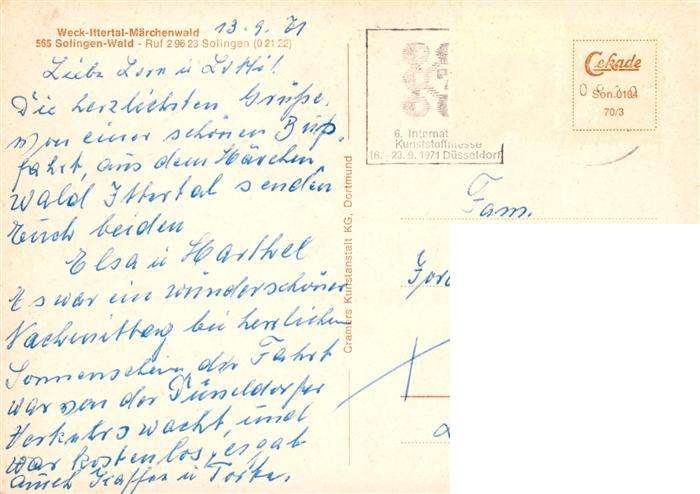 Weck-Ittertal-Märchenwald
565 Solingen-Wald - Ruf 2 96 23 Solingen (0 21 22)
13.9.71
Liebe Lore u Lotti!
Die herzlichsten Grüße
von einer schönen Bus,
fahrt, aus dem Märchen
wald Ittertal senden
Euch beiden
Elsa u
Es war ein wunderschöner
Nachmittag bei herrlichen
Sonnenschein die Fahrt
war von der Düsseldorfer
Verkehrswacht, und
war kostenlos, es gab
auch Kaffee u Torte.
Cramers Kunstanstalt KG, Dortmund
6. Internat
Kunststoffmesse
16.-23.9.1971 Düsseldorf
Cekade
Son.0104
70/3
Fam.